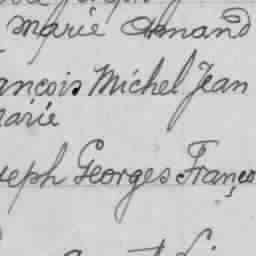 Marie Armand
ançois Michel Jean
Marie
seph Georges Franço